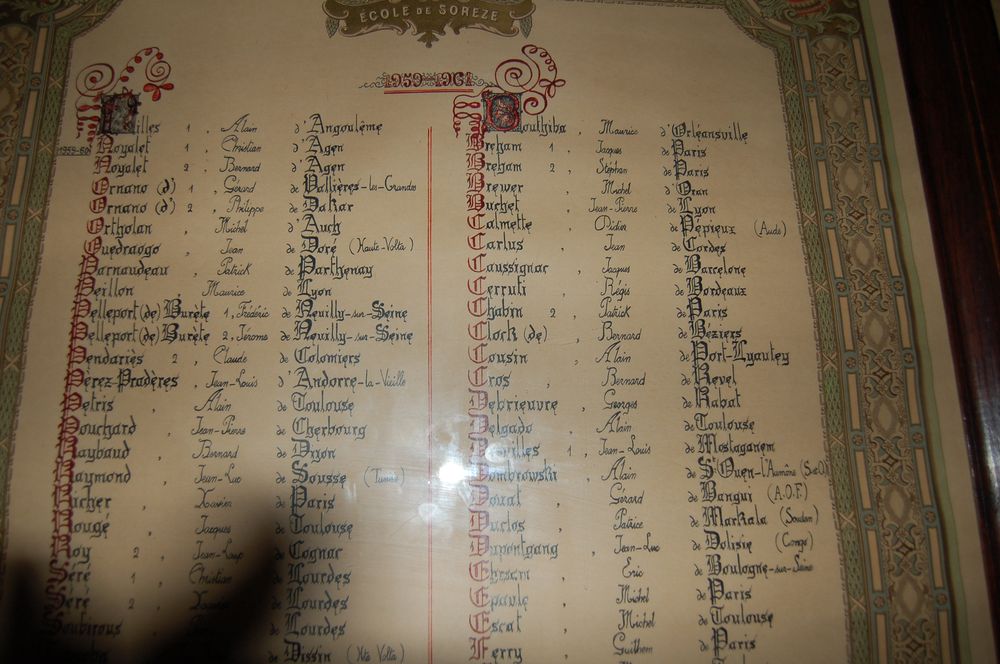 ÉCOLE DE SOREZE
1959-1961
illes 1, Alain d'Angoulême
1959-60
Noyalet 1, Christian d'Agen
Noyalet 2, Bernard d'Agen
Ornano (d') 1, Gérard de Vallières-les-Grandes
Ornano (d') 2, Philippe de Dakar
Ortholan, Michel d'Auch
Ouedraogo, Jean de Doré (Haute-Volta)
Parnaudeau, Patrick de Parthenay
Peillon Maurice de Lyon
Pelleport (de) Burète 1, Frédéric de Neuilly-sur-Seine
Pelleport (de) Burète 2, Jérôme de Neuilly-sur-Seine
Pendariès 2, Claude de Colomiers
Pérez-Pradères, Jean-Louis d'Andorre-la-Vieille
Petris, Alain de Toulouse
Pouchard, Jean-Pierre de Cherbourg
Raybaud, Bernard de Dijon
Raymond, Jean-Luc de Sousse (Tunisie)
Rucher, Xavier de Paris
Rougé, Jacques de Toulouse
Roy 2, Jean-Loup de Cognac
Séré 1, Christian de Lourdes
Séré 2, de Lourdes
Soubirous de Lourdes
de Dissin (Hte Volta)
Bouthiba, Maurice d'Orléansville
Breham 1, Jacques de Paris
Breham 2, Stéphan de Paris
Brewer, Michel d'Oran
Buchet, Jean-Pierre de Lyon
Calmette, Didier de Pépieux (Aude)
Carlus, Jean de Cordes
Caussignac, Jacques de Barcelone
Cerruti, Régis de Bordeaux
Chabin 2, Patrick de Paris
Clock (de), Bernard de Béziers
Cousin, Alain de Port-Lyautey
Cros, Bernard de Revel
Debrieuvre, Georges de Rabat
Delgado, Alain de Toulouse
Devilles 1, Jean-Louis de Mostaganem
Dombrowski, Alain de St Ouen-l'Aumone (S et O)
Douat, Gérard de Bangui (A.O.F.)
Duclos, Patrice de Markala (Soudan)
Dupontgang, Jean-Luc de Dolisie (Congo)
Ehrsam, Eric de Boulogne-sur-Seine
Epaule, Michel de Paris
Escat, Michel de Toulouse
Ferry, Guilhem de Paris